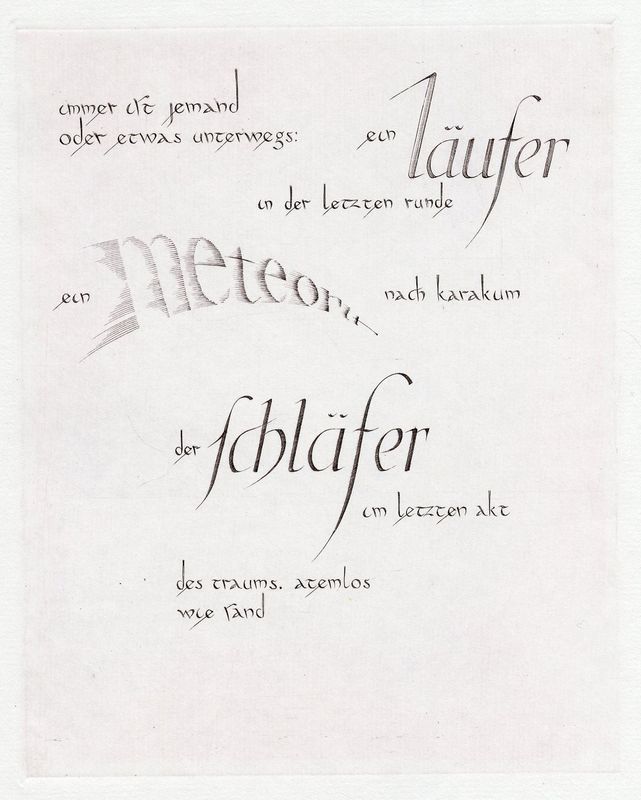 immer ist jemand
oder etwas unterwegs: ein läufer
in der letzten runde
ein meteorit nach karakum
der schläfer
im letzten akt
des traums. atemlos
wie sand